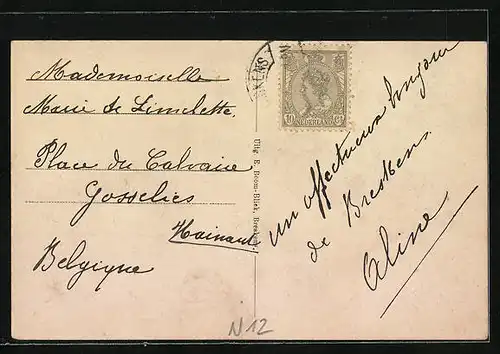 Mademoiselle
Marie de Limelette.
Place du Calvaire
Gosselies
Hainaut
Belgique
Uitg. E. Boom-Bliek, Breskens.
KENS
10 NEDERLAND CT
un affectueux bonjour
de Breskens.
Aline
N12